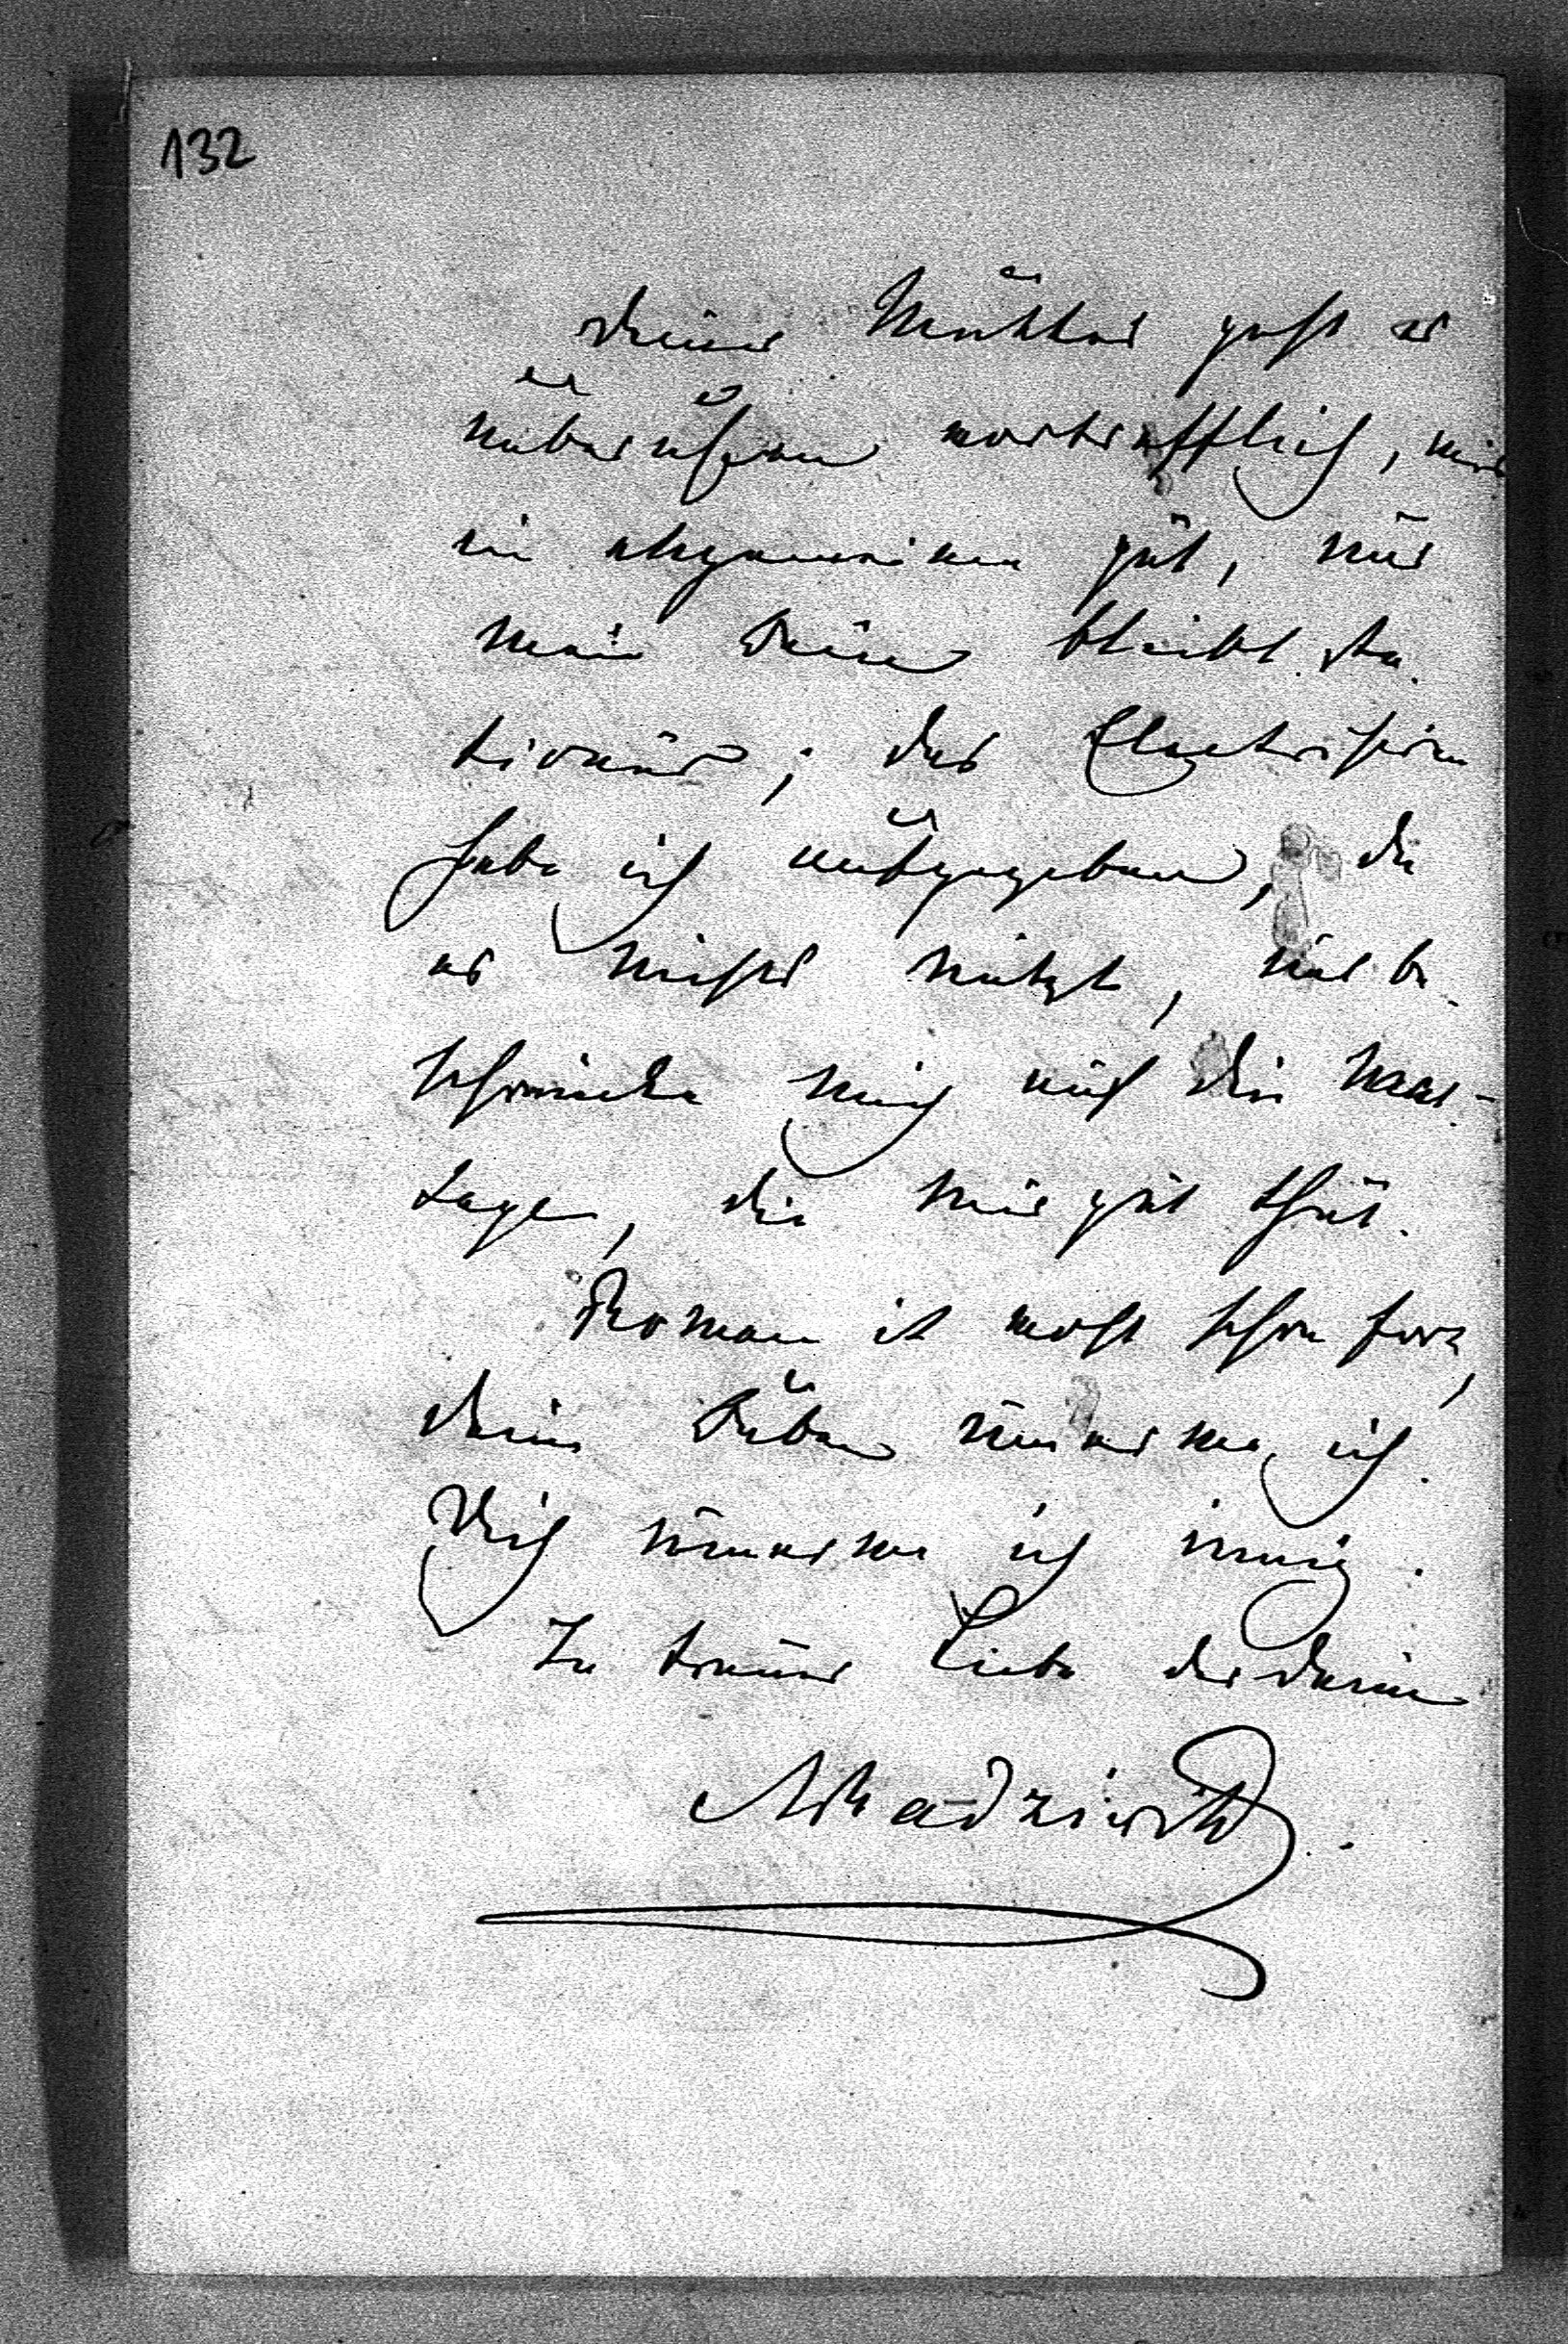 132
Deiner Mutter geht es
unberufen vortrefflich, mir
im allgemeinen gut, nur
mein Bein bleibt sta-
tionär; das Electrisiren
habe ich aufgegeben, da
es nichts nützt, und be-
schränke mich auf die Mas-
sage, die mir gut thut.
Roman ist wohl schon fort,
Deine Buben umarme ich.
Dich umarme ich innig.
In treuer Liebe der Deine